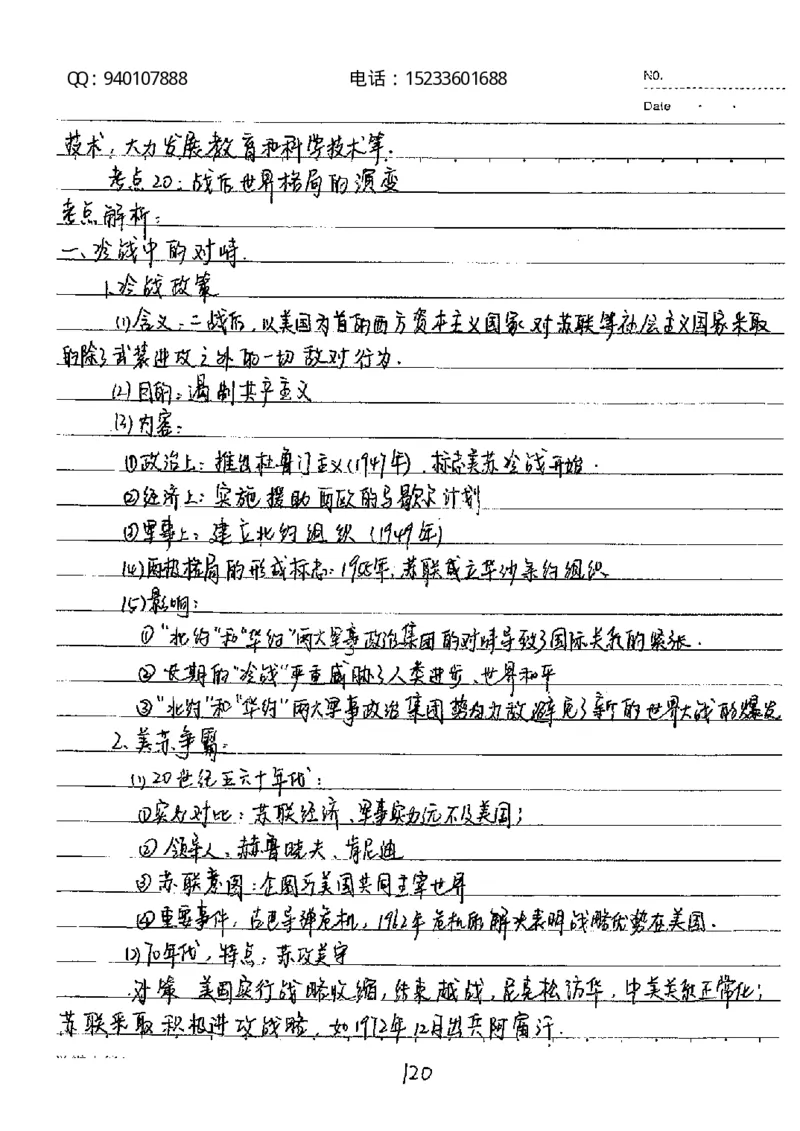 QQ：940107888 电话：15233601688 NO.
Date · ·
技术，大力发展教育和科学技术等.
考点20：战后世界格局的演变
考点解析：
一、冷战中的对峙.
1.冷战政策
(1)含义：二战后，以美国为首的西方资本主义国家对苏联等社会主义国家采取
的除了武装进攻之外的一切敌对行为.
(2)目的：遏制共产主义
(3)内容：
①政治上：推出杜鲁门主义(1947年)，标志美苏冷战开始.
②经济上：实施援助西欧的马歇尔计划
③军事上：建立北约组织（1949年）
(4)两极格局的形成标志：1955年，苏联成立华沙条约组织.
(5)影响：
①"北约"和"华约"两大军事政治集团的对峙导致了国际关系的紧张.
②长期的"冷战"严重威胁了人类进步、世界和平
③"北约"和"华约"两大军事政治集团势均力敌避免了新的世界大战的爆发
2.美苏争霸：
(1)20世纪五六十年代：
①实力对比：苏联经济、军事实力远不及美国；
②领导人：赫鲁晓夫、肯尼迪
③苏联意图：企图与美国共同主宰世界
④重要事件，古巴导弹危机，1962年危机的解决表明战略优势在美国.
(2)70年代，特点：苏攻美守
对策 美国实行战略收缩，结束越战，尼克松访华，中美关系正常化；
苏联采取积极进攻战略，如1972年12月出兵阿富汗.
120